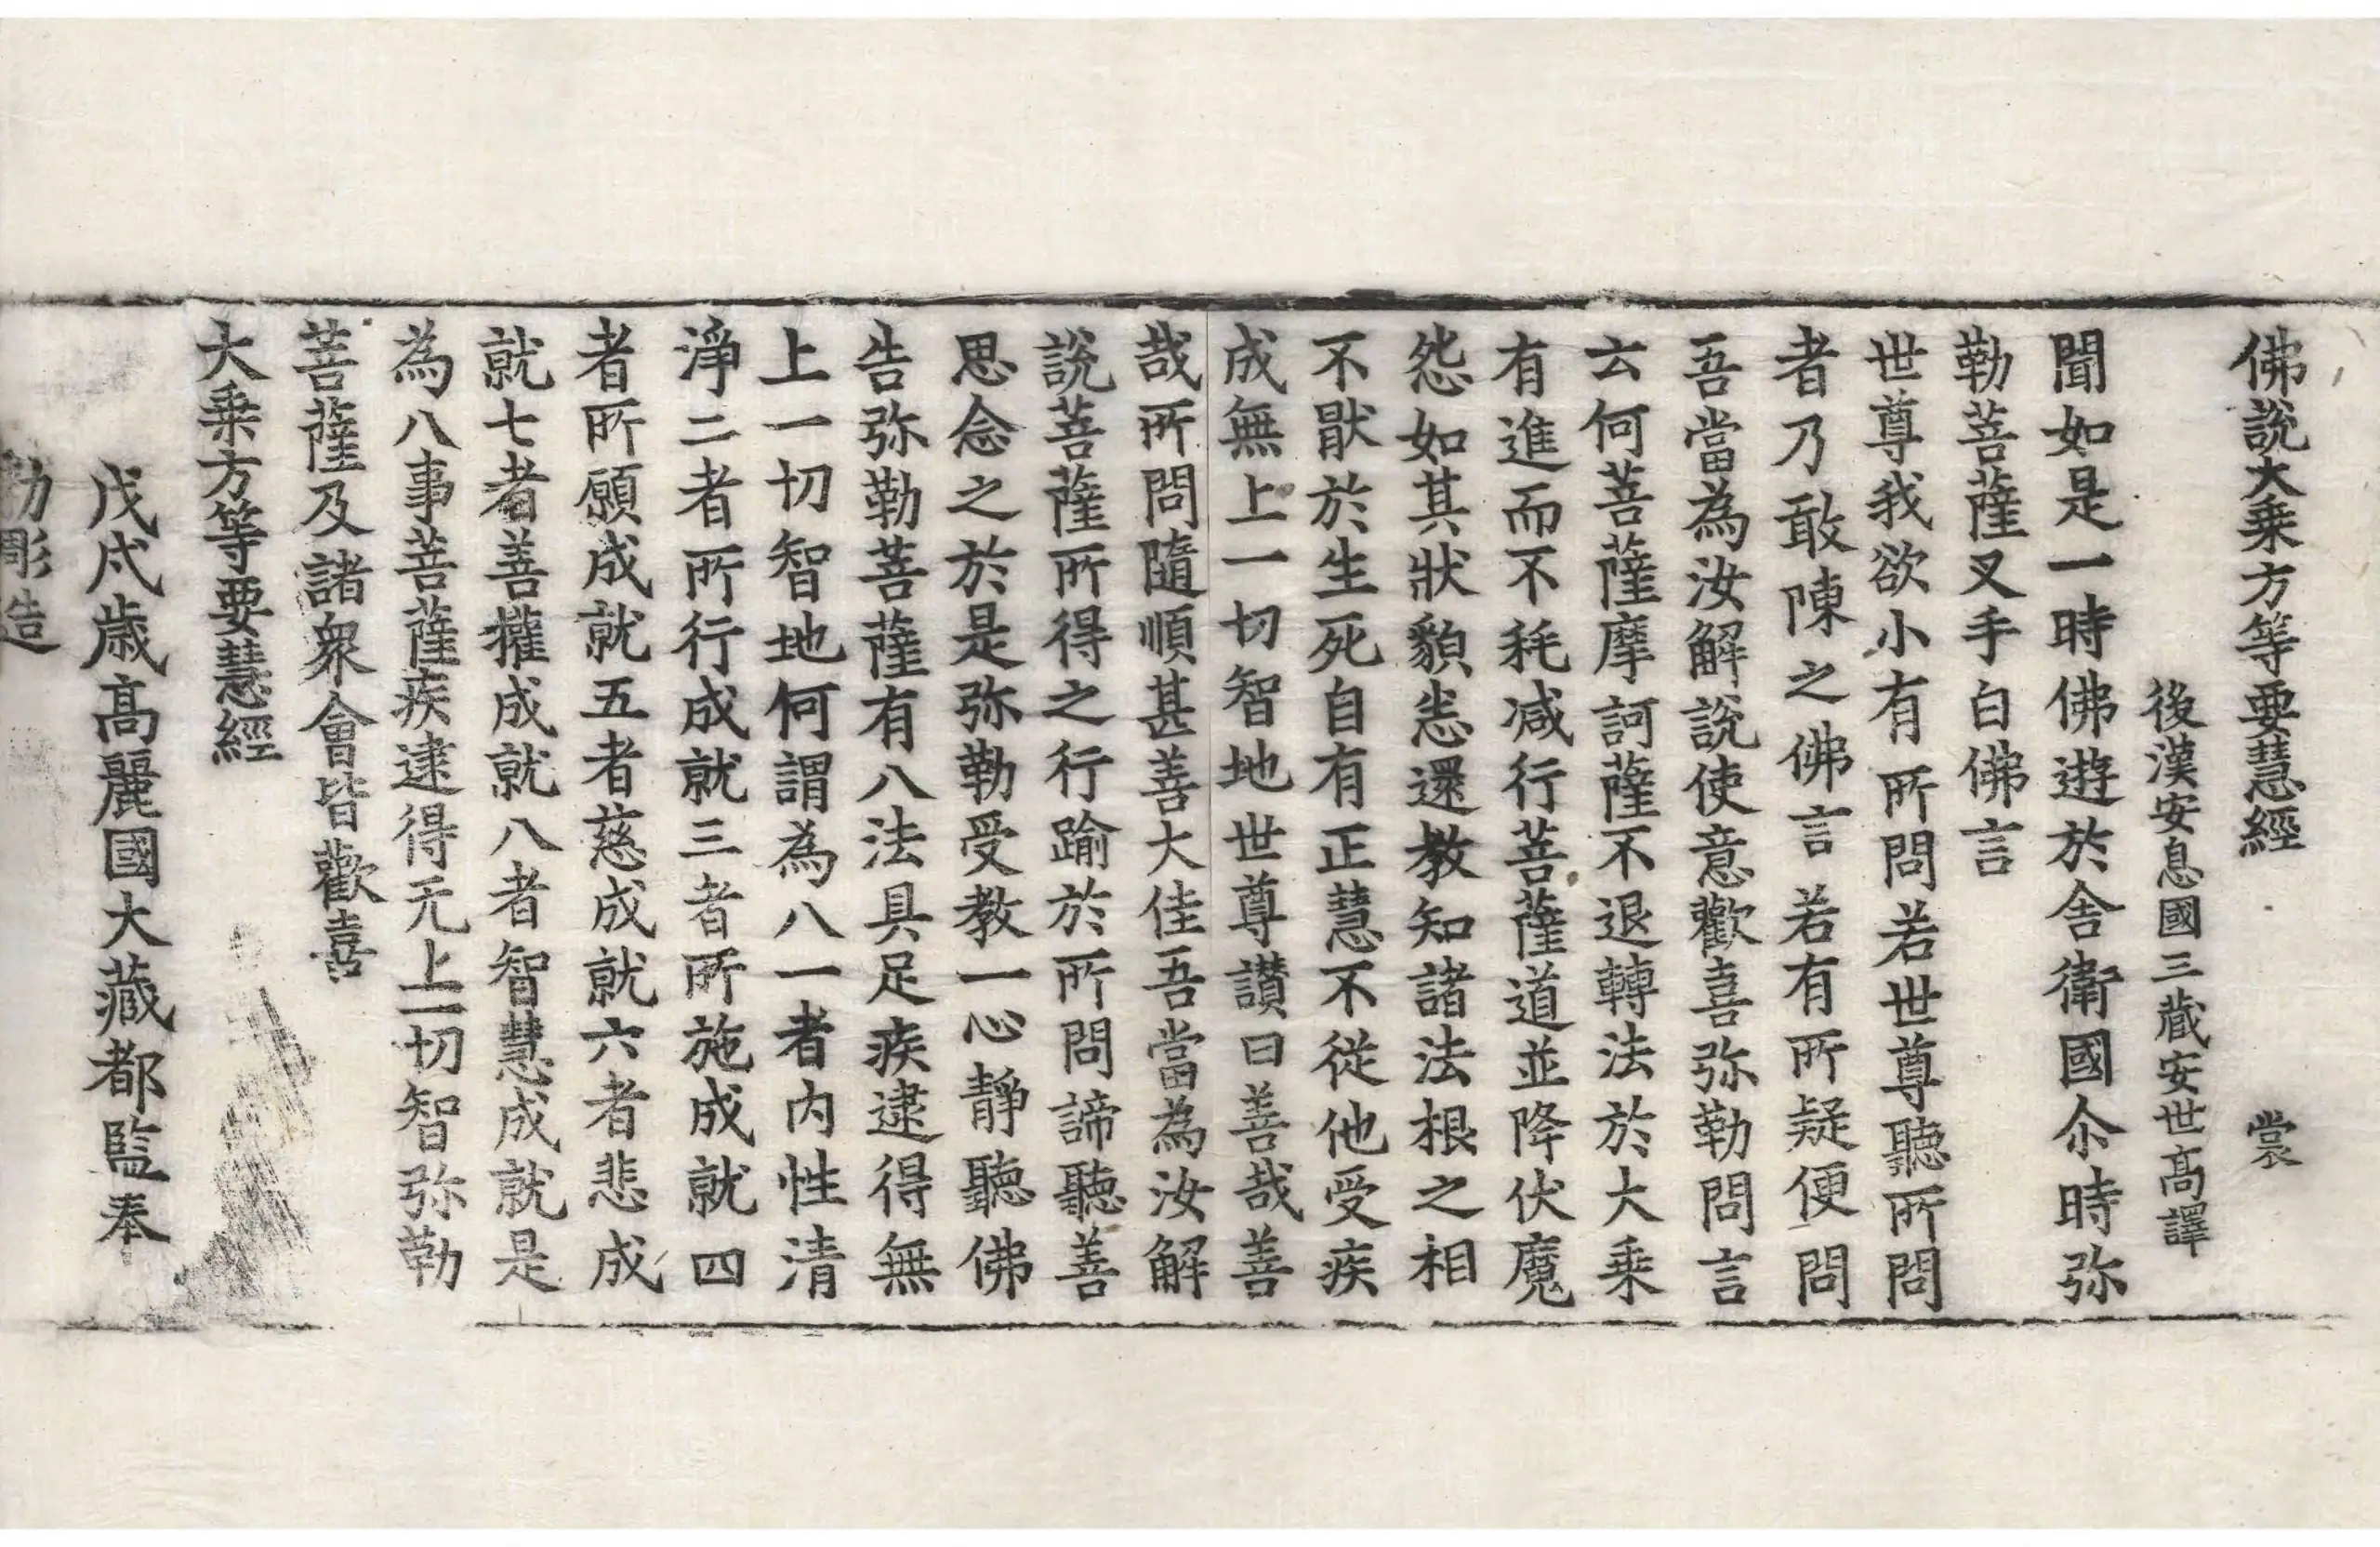 佛說大乗方等要慧經 裳
後漢安息國三藏安世髙譯
聞如是一時佛遊於舎衛國尒時弥
勒菩薩叉手白佛言
世尊我欲小有所問若世尊聽所問
者乃敢陳之佛言若有所疑便問
吾當為汝解說使意歡喜弥勒問言
云何菩薩摩訶薩不退轉法於大乗
有進而不耗减行菩薩道並降伏魔
怨如其狀貌恙還教知諸法根之相
不猒於生死自有正慧不從他受疾
成無上一切智地世尊讃曰善哉善
哉所問隨順甚善大佳吾當為汝解
說菩薩所得之行踰於所問諦聽善
思念之於是弥勒受教一心靜聽佛
告弥勒菩薩有八法具足疾逮得無
上一切智地何謂為八一者内性清
淨二者所行成就三者所施成就四
者所願成就五者慈成就六者悲成
就七者善權成就八者智慧成就是
為八事菩薩疾逮得无上一切智弥勒
菩薩及諸衆會皆歡喜
大乗方等要慧經
戊戌歳髙麗國大藏都監奉
勅彫造